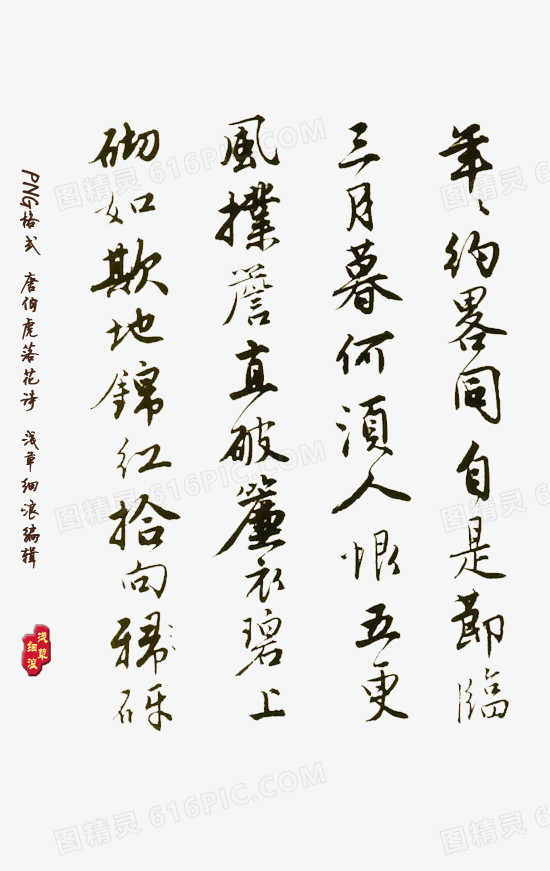 年〻約畧同自是節臨
三月暮何須人恨五更
風撲簷直破簾衣碧上
砌如欺地錦紅拾向砑
PNG格式 唐伯虎落花诗 浅草细浪编辑
浅草
细浪
图精灵 616PIC.COM
图精灵 616PIC.COM
图精灵 616PIC.COM
图精灵 616PIC.COM
图精灵 616PIC.COM
图精灵 616PIC.COM